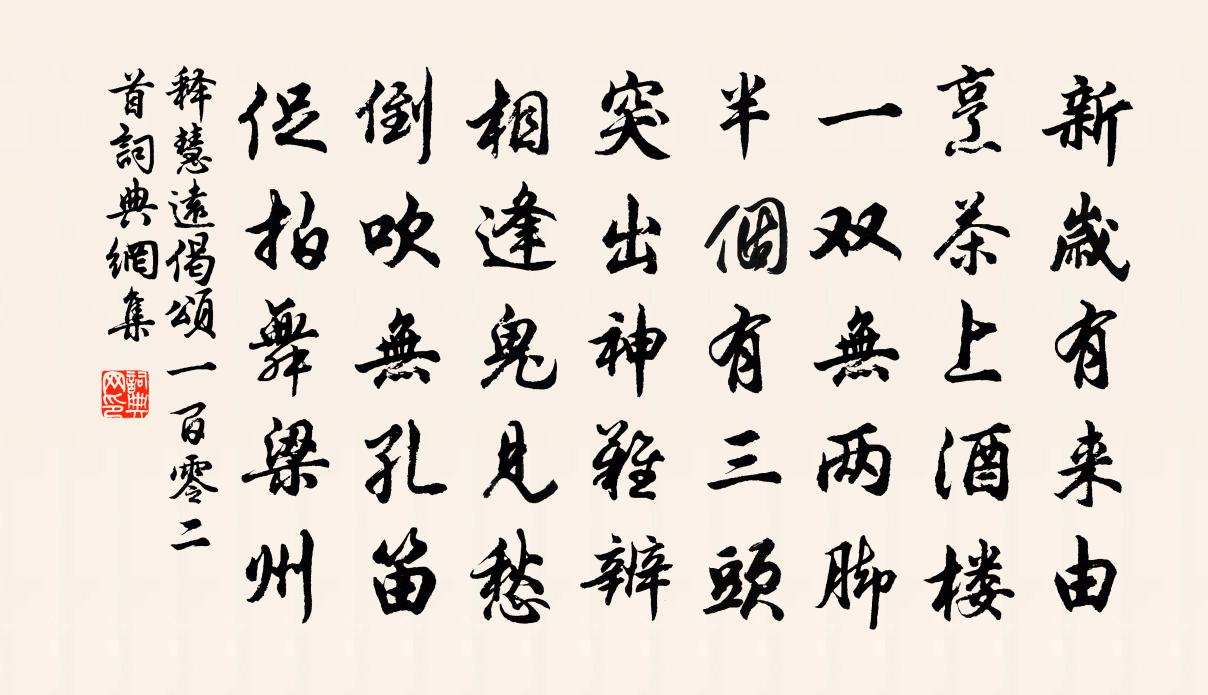 新歳有来由
烹茶上酒楼
一双無两脚
半個有三頭
突出神難辨
相逢鬼見愁
倒吹無孔笛
促拍舞梁州
释慧遠偈頌一百零二
首詞典網集
詞典
网印